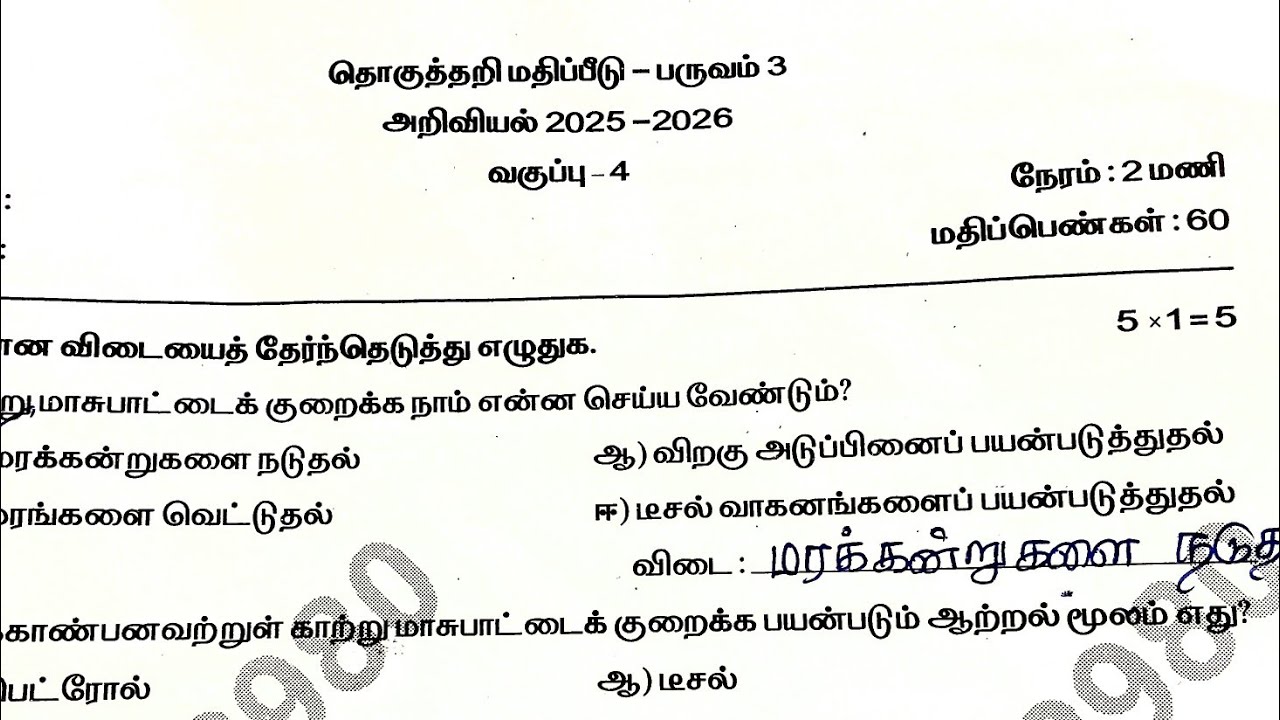 தொகுத்தறி மதிப்பீடு – பருவம் 3
அறிவியல் 2025 –2026
வகுப்பு – 4
நேரம் : 2 மணி
:
மதிப்பெண்கள் : 60
:
5 ×1=5
ான விடையைத் தேர்ந்தெடுத்து எழுதுக.
று மாசுபாட்டைக் குறைக்க நாம் என்ன செய்ய வேண்டும்?
மரக்கன்றுகளை நடுதல் ஆ) விறகு அடுப்பினைப் பயன்படுத்துதல்
ரங்களை வெட்டுதல் ஈ) டீசல் வாகனங்களைப் பயன்படுத்துதல்
விடை : மரக்கன்றுகளை நடுத
காண்பனவற்றுள் காற்று மாசுபாட்டைக் குறைக்க பயன்படும் ஆற்றல் மூலம் எது?
பெட்ரோல் ஆ) டீசல்